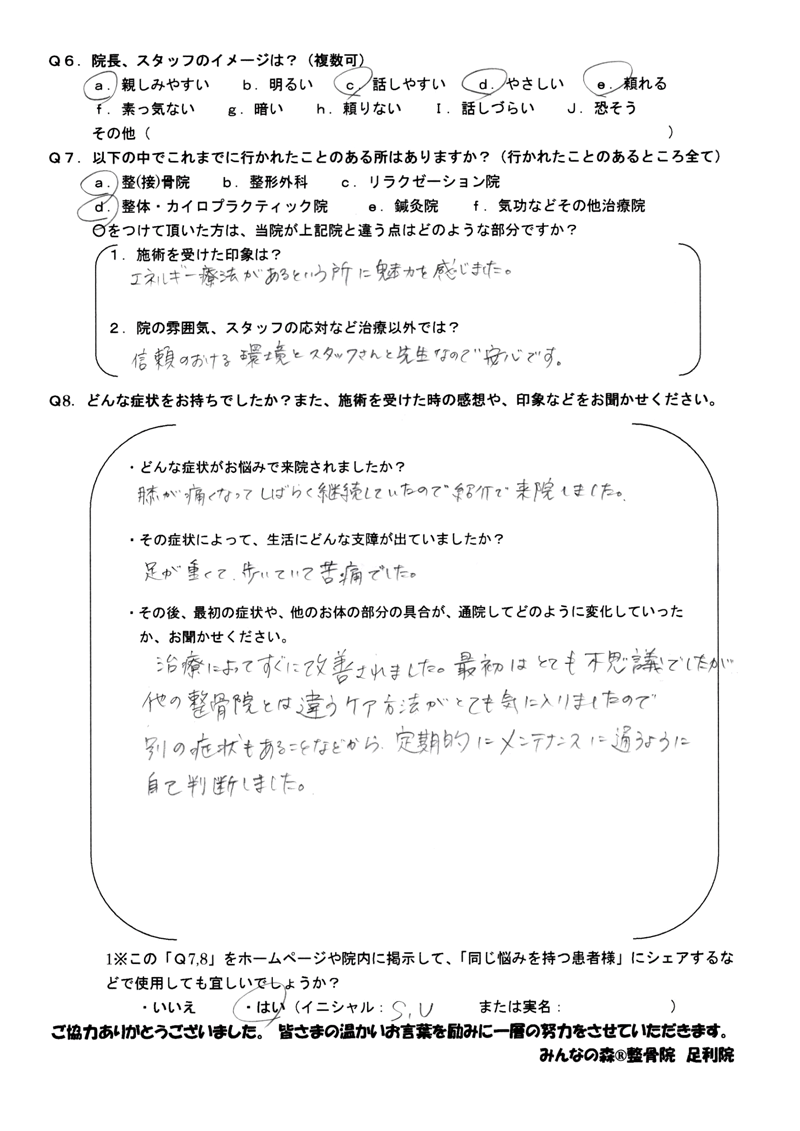 Q6．院長、スタッフのイメージは？（複数可）
a．親しみやすい　b．明るい　c．話しやすい　d．やさしい　e．頼れる
f．素っ気ない　g．暗い　h．頼りない　I．話しづらい　J．恐そう
その他（　）
Q7．以下の中でこれまでに行かれたことのある所はありますか？（行かれたことのあるところ全て）
a．整(接)骨院　b．整形外科　c．リラクゼーション院
d．整体・カイロプラクティック院　e．鍼灸院　f．気功などその他治療院
〇をつけて頂いた方は、当院が上記院と違う点はどのような部分ですか？
1．施術を受けた印象は？
エネルギー療法があるという所に魅力を感じました。
2．院の雰囲気、スタッフの応対など治療以外では？
信頼のおける環境とスタッフさんと先生なので安心です。
Q8．どんな症状をお持ちでしたか？また、施術を受けた時の感想や、印象などをお聞かせください。
・どんな症状がお悩みで来院されましたか？
膝が痛くなってしばらく継続していたので紹介で来院しました。
・その症状によって、生活にどんな支障が出ていましたか？
足が重くて、歩いていて苦痛でした。
・その後、最初の症状や、他のお体の部分の具合が、通院してどのように変化していった
か、お聞かせください。
治療によってすぐに改善されました。最初はとても不思議でしたが
他の整骨院とは違うケア方法がとても気に入りましたので
別の症状もあることなどから、定期的にメンテナンスに通うように
自で判断しました。
1※この「Q7,8」をホームページや院内に掲示して、「同じ悩みを持つ患者様」にシェアするな
どで使用しても宜しいでしょうか？
・いいえ　・はい（イニシャル：S,U　または実名：　）
ご協力ありがとうございました。 皆さまの温かいお言葉を励みに一層の努力をさせていただきます。
みんなの森®整骨院　足利院